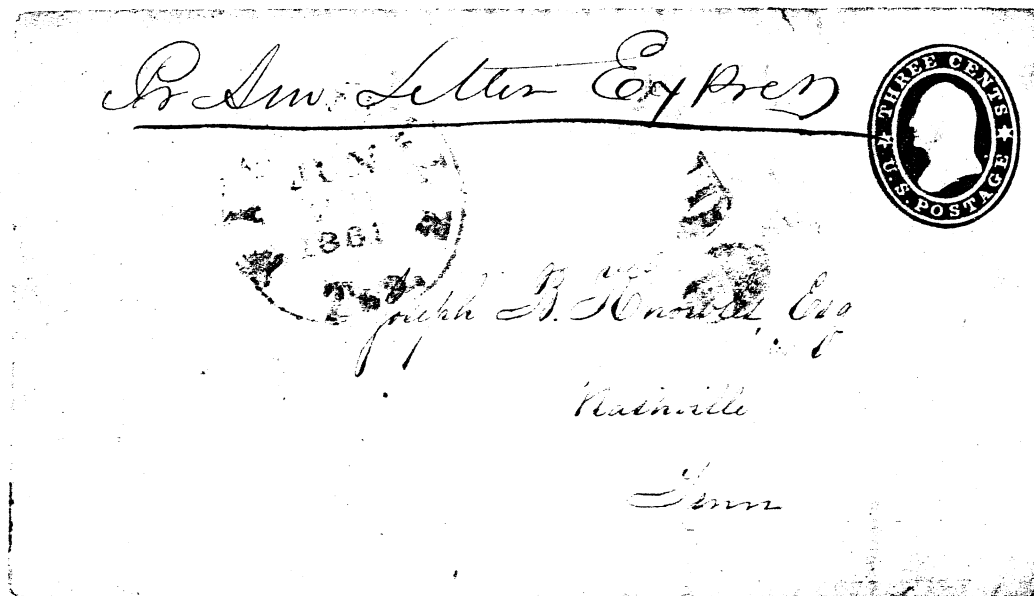 Pr Am. Letter Express
THREE CENTS
U.S. POSTAGE
JUN
1861
Joseph B. Knowles, Esq
Nashville
Tenn